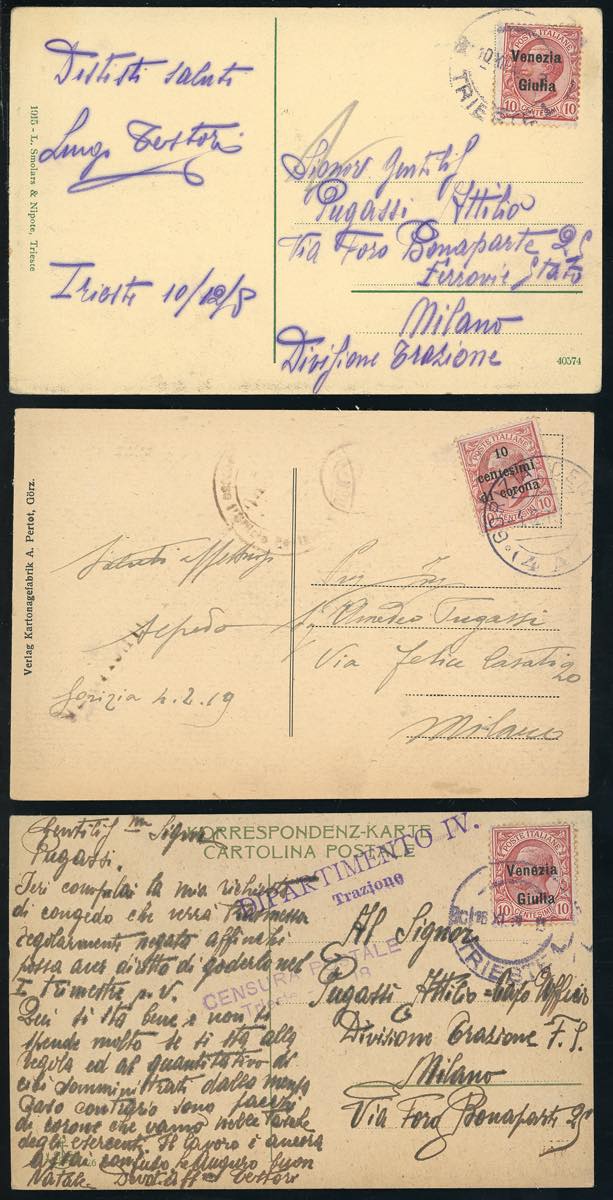 Distinti saluti
Luigi Testori
Trieste 10/12/8
1915 - L. Smolars & Nipote, Trieste
POSTE ITALIANE
Venezia
Giulia
10 CENTESIMI 10
TRIESTE
Signor Gentil
Pugassi Attilio
Via Foro Bonaparte 25
Ferrovie Stato
Milano
Divisione Trazione
40574
Verlag Kartonagefabrik A. Pertot, Görz.
POSTE ITALIANE
10
centesimi
di corona
10 CENTESIMI 10
Saluti
Alfredo
Gorizia 4.2.19
Amedeo Pugassi
Via Felice Casati 20
Milano
CORRESPONDENZ-KARTE
CARTOLINA POSTALE
DIPARTIMENTO IV.
Trazione
CENSURA POSTALE
POSTE ITALIANE
Venezia
Giulia
10 CENTESIMI 10
TRIESTE
Gentil Signor
Pugassi.
Ieri compilai la mia richiesta
di congedo che verrà trasmessa
regolarmente negato affinchi
possa aver diritto di goderlo nel
I Trimestre p. V.
Qui si sta bene e non si
spende molto se si sta alla
regola ed al quantitativo di
cibi somministrati dalla mensa
Caso contrario sono pacchi
di corone che vanno nelle tasche
degli esercenti. Il lavoro è ancora
assai confuso. Auguro buon
Natale. Devot Aff Testori
Al Signor
Pugassi Attilio = Capo Ufficio
Divisione Trazione F. S.
Milano
Via Foro Bonaparte 25